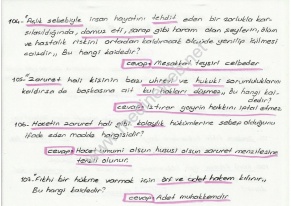 104- Açlık sebebiyle insan hayatını tehdit eden bir zorlukla kar-
şılaşıldığında, domuz eti, şarap gibi haram olan şeylerin, ölüm
ve hastalık riskini ortadan kaldıracak ölçüde yenilip içilmesi
caizdir., Bu hangi kaidedir?
cevap: Meşakkat teysiri celbeder
105- Zaruret hali kişinin bazı uhrevi ve hukuki sorumluluklarını
kaldırsa da başkasına ait kul hakları düşmez, bu hangi kai-
dedir?
cevap: Iztırar gayrin hakkını iptal etmez.
106- Hacetin zaruret hali gibi kolaylık hükümlerine sebep olduğunu
ifade eden madde hangisidir?
cevap: Hacet umumi olsun hususi olsun zaruret menzilesine
tenzil olunur.
107- Fıkhi bir hükme varmak için örf ve adet hakem kılınır.,
Bu hangi kaidedir?
cevap: Adet muhakkemdir.